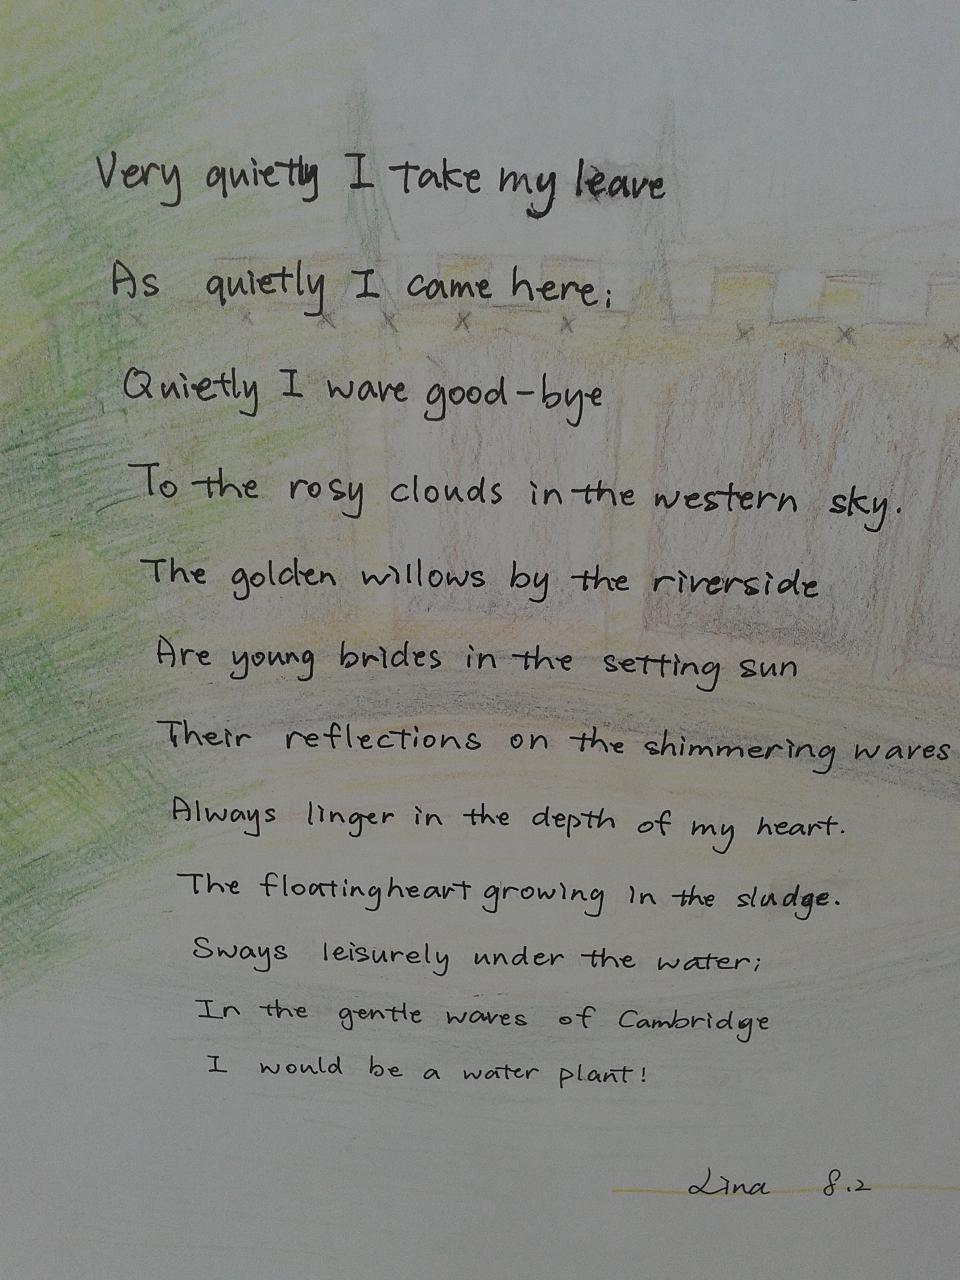 Very quietly I take my leave
As quietly I came here;
Quietly I wave good-bye
To the rosy clouds in the western sky.
The golden willows by the riverside
Are young brides in the setting sun
Their reflections on the shimmering waves
Always linger in the depth of my heart.
The floatingheart growing in the sludge.
Sways leisurely under the water;
In the gentle waves of Cambridge
I would be a water plant!
Lina 8.2